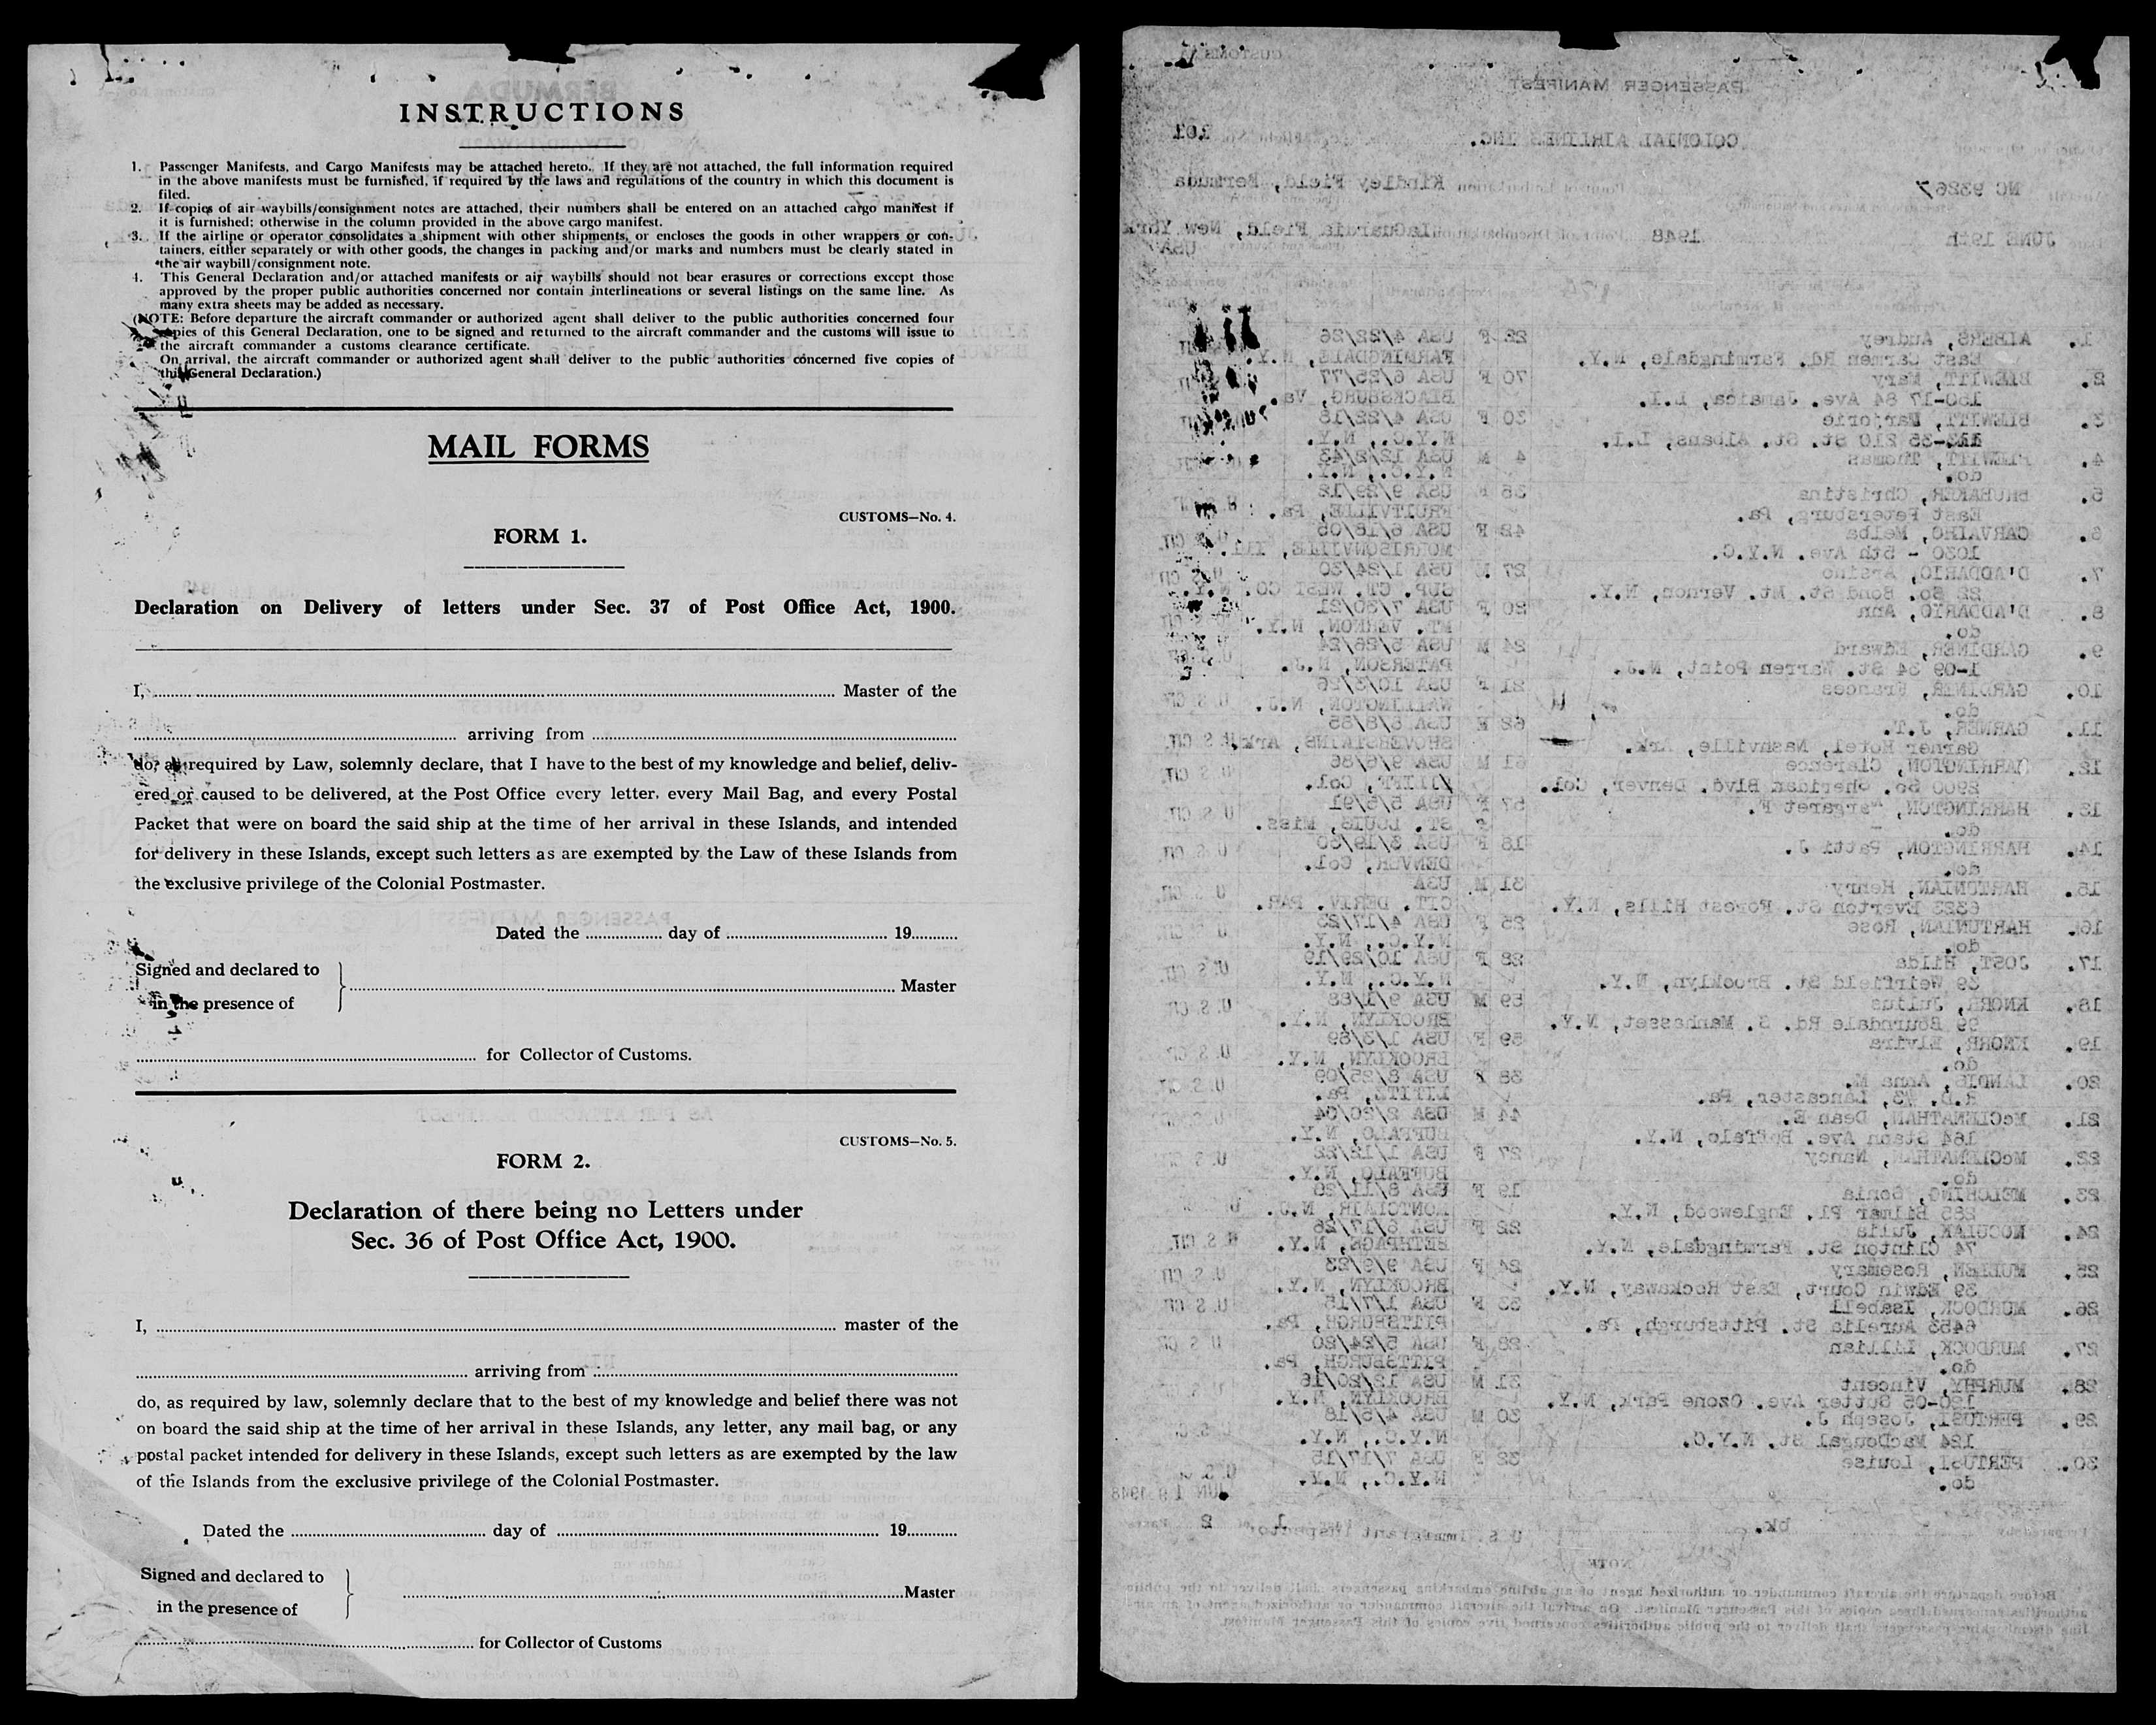 INSTRUCTIONS
1. Passenger Manifests, and Cargo Manifests may be attached hereto. If they are not attached, the full information required
in the above manifests must be furnished, if required by the laws and regulations of the country in which this document is
filed.
2. If copies of air waybills/consignment notes are attached, their numbers shall be entered on an attached cargo manifest if
it is furnished; otherwise in the column provided in the above cargo manifest.
3. If the airline or operator consolidates a shipment with other shipments, or encloses the goods in other wrappers or con-
tainers, either separately or with other goods, the changes in packing and/or marks and numbers must be clearly stated in
the air waybill/consignment note.
4. This General Declaration and/or attached manifests or air waybills should not bear erasures or corrections except those
approved by the proper public authorities concerned nor contain interlineations or several listings on the same line. As
many extra sheets may be added as necessary.
(NOTE: Before departure the aircraft commander or authorized agent shall deliver to the public authorities concerned four
copies of this General Declaration, one to be signed and returned to the aircraft commander and the customs will issue to
the aircraft commander a customs clearance certificate.
On arrival, the aircraft commander or authorized agent shall deliver to the public authorities concerned five copies of
this General Declaration.)
MAIL FORMS
CUSTOMS—No. 4.
FORM 1.
Declaration on Delivery of letters under Sec. 37 of Post Office Act, 1900.
I, ........ Master of the
........ arriving from ........
do, as required by Law, solemnly declare, that I have to the best of my knowledge and belief, deliv-
ered or caused to be delivered, at the Post Office every letter, every Mail Bag, and every Postal
Packet that were on board the said ship at the time of her arrival in these Islands, and intended
for delivery in these Islands, except such letters as are exempted by the Law of these Islands from
the exclusive privilege of the Colonial Postmaster.
Dated the ........ day of ........ 19........
Signed and declared to
........ Master
in the presence of
........ for Collector of Customs.
CUSTOMS—No. 5.
FORM 2.
Declaration of there being no Letters under
Sec. 36 of Post Office Act, 1900.
I, ........ master of the
........ arriving from ........
do, as required by law, solemnly declare that to the best of my knowledge and belief there was not
on board the said ship at the time of her arrival in these Islands, any letter, any mail bag, or any
postal packet intended for delivery in these Islands, except such letters as are exempted by the law
of the Islands from the exclusive privilege of the Colonial Postmaster.
Dated the ........ day of ........ 19........
Signed and declared to
........ Master
in the presence of
........ for Collector of Customs
CUSTOMS
PASSENGER MANIFEST
COLONIAL AIRLINES INC. 101
NC 93267 Kindley Field, Bermuda
JUNE 19th 1948 LaGuardia Field, New York
USA
1. ALBERS, Audrey 22 F USA 4/22/26
East Carmen Rd. Farmingdale, N.Y. FARMINGDALE, N.Y.
2. BLEWITT, Mary 70 F USA 6/25/77
150-17 84 Ave. Jamaica, L.I. BLACKSBURG, Va.
3. BLEWITT, Marjorie 30 F USA 4/22/18
210 St. St. Albans, L.I. N.Y.C., N.Y.
4. BLEWITT, Thomas 4 M USA 12/2/43
do. N.Y.C., N.Y.
5. BRUBAKER, Christina 35 F USA 9/29/12
East Petersburg, Pa. FRUITVILLE, Pa.
6. CARVALHO, Melba USA 6/18/05
1030 - 5th Ave. N.Y.C. MORRISONVILLE, Ill.
7. D'ADDARIO, 27 M USA 1/24/20
22 So. Bond St. Mt. Vernon, N.Y. SUP. CT. WEST CO. N.Y.
8. D'ADDARIO, Ann USA 7/30/21
do. MT. VERNON, N.Y.
9. GARDINER, Edward 24 M USA 5/26/24
1-09 34 St. Warren Point, N.J. PATERSON, N.J.
10. GARDINER, Frances 21 F USA 10/3/26
do. WALLINGTON, N.J. U.S. CIT.
11. GARNER, J.T. USA
Garner Hotel, Nashville, Ark.
12. HARRINGTON, Clarence 61 M USA 9/6/86
2900 So. Sheridan Blvd. Denver, Col.
13. HARRINGTON, Margaret F. 57 F USA 5/5/91
do. ST. LOUIS, Miss.
14. HARRINGTON, Patti J. 18 F USA 3/19/30
do. DENVER, Col.
15. HARTUNIAN, Henry 31 M USA
6323 Everton St. Forest Hills, N.Y. CIT. DERIV. PAR.
16. HARTUNIAN, Rose 25 F USA 4/17/23
do. N.Y.C., N.Y.
17. JOST, Hilda 28 F USA 10/29/19
39 Weirfield St. Brooklyn, N.Y. N.Y.C., N.Y.
18. KNORR, Julius 59 M USA 9/1/88
99 Bourndale Rd. S. Manhasset, N.Y. BROOKLYN, N.Y.
19. KNORR, Elvira 59 F USA 1/3/89
do. BROOKLYN, N.Y.
20. LANDIS, Anna M. 38 F USA 8/25/09
R.D. #3, Lancaster, Pa. LITITZ, Pa.
21. McCLENATHAN, Dean E. 44 M USA 2/20/04
164 Ave. Buffalo, N.Y. BUFFALO, N.Y.
22. McCLENATHAN, Nancy 27 F USA 1/12/22
do. BUFFALO, N.Y.
23. MELCHING, Sonia 19 F USA
285 Bilmar Pl. Englewood, N.Y. MONTCLAIR, N.J.
24. MOCUIAK, Julia 22 F USA 6/17/26
74 Clinton St. Farmingdale, N.Y. BETHPAGE, N.Y.
25. MULLEN, Rosemary 24 F USA 9/9/23
39 Edwin Court, East Rockaway, N.Y. BROOKLYN, N.Y.
26. MURDOCK, Isabell 33 F USA 1/7/15
6453 Aurelia St. Pittsburgh, Pa. PITTSBURGH, Pa.
27. MURDOCK, Lillian 28 F USA 5/24/20
do. PITTSBURGH, Pa.
28. MURPHY, Vincent 31 M USA 12/20/16
130-05 Sutter Ave. Ozone Park, N.Y. BROOKLYN, N.Y.
29. PERTUSI, Joseph J. 30 M USA 4/5/18
124 MacDougal St. N.Y.C. N.Y.C., N.Y.
30. PERTUSI, Louise 32 F USA 7/17/15
do. N.Y.C., N.Y.
JUN 19 1948
bk. U.S. Immigrant Inspector 1 2
NOTE
Before departure the aircraft commander or authorized agent of an airline embarking passengers shall deliver to the public
authorities concerned three copies of this Passenger Manifest. On arrival the aircraft commander or authorized agent of an air-
line disembarking passengers shall deliver to the public authorities concerned five copies of this Passenger Manifest.